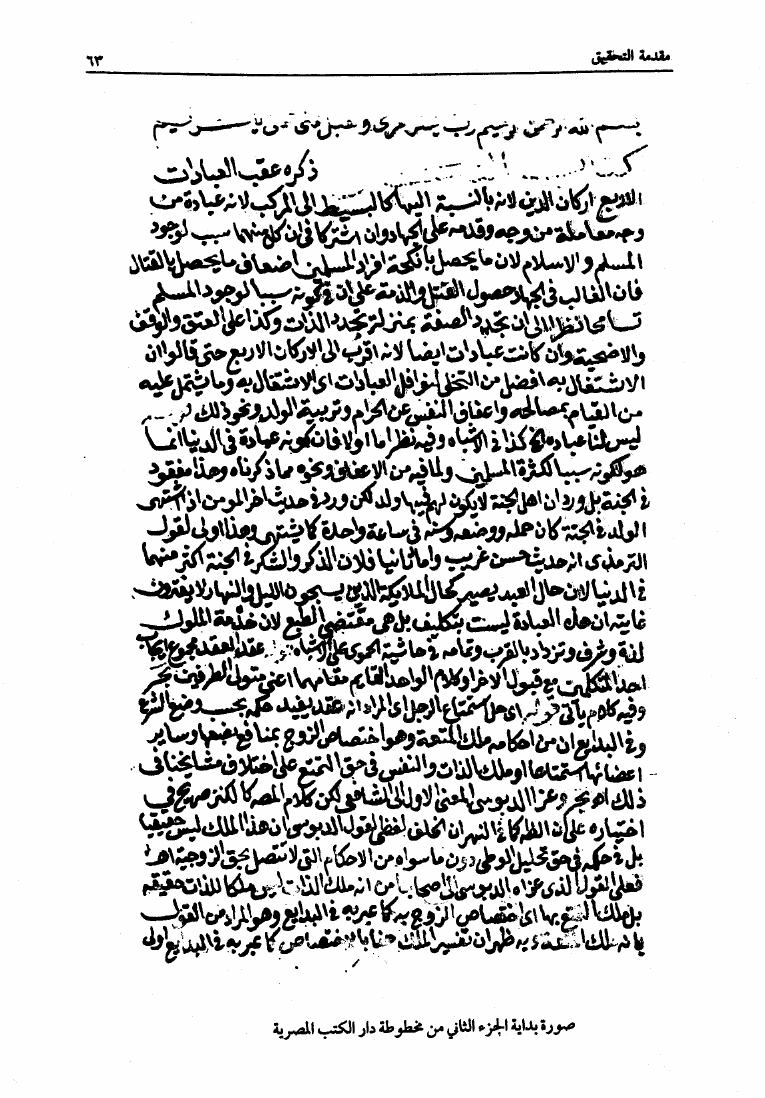 مقدمة التحقيق ٦٣
بسم الله الرحمن الرحيم رب يسر
ذكره عقب العبادات
الاربع اركان الدين لانه بالنسبة اليها كالبسيط الى المركب لانه عبادة من
وجه معاملة من وجه وقدمه على الجهاد وان اشتركا في ان كلا منهما سبب لوجود
المسلم والاسلام لان ما يحصل بانكحة افراد المسلمين اضعاف ما يحصل بالقتال
فان الغالب في الجهاد حصول القتل والذمة على ان في كونه سببا لوجود المسلم
تسامحا نظرا الى ان تجدد الصفة بمنزلة تجدد الذات وكذا على العتق والوقف
والاضحية وان كانت عبادات ايضا لانه اقرب الى الاركان الاربع حتى قالوا ان
الاشتغال به افضل من التخلي لنوافل العبادات اي الاشتغال به وما يشتمل عليه
من القيام بمصالحه واعفاف النفس عن الحرام وتربية الولد ونحو ذلك
ليس لنا عبادة الخ كذا في الاشباه وفيه نظر اما اولا فان كونه عبادة في الدنيا انما
هو لكونه سببا لكثرة المسلمين ولما فيه من الاعفاف ونحوه مما ذكرناه وهذا مفقود
في الجنة بل ورد ان اهل الجنة لا يكون لهم فيها ولد لكن ورد في حديث اخر المومن اذا اشتهى
الولد في الجنة كان حمله ووضعه وسنه في ساعة واحدة كما يشتهي وهذا اولى لقول
الترمذي انه حديث حسن غريب واما ثانيا فلان الذكر والشكر في الجنة اكثر منهما
في الدنيا لان حال العبد يصير كحال الملايكة الذين يسبحون الليل والنهار لا يفترون
غايته ان هذه العبادة ليست بتكليف بل هي مقتضى الطبع لان خدمة الملوك
لذة وشرف وتزداد بالقرب وتمامه في حاشية الحموي على الاشباه عقد العقد مجموع ايجاب
احد المتكلمين مع قبول الاخر او كلام الواحد القايم مقامهما اعني متولى الطرفين بحر
وفيه كلام ياتي قوله اي حل استمتاع الرجل اي المراد انه عقد يفيد حكمه بحسب وضع الشرع
وفي البدايع ان من احكامه ملك المتعة وهو اختصاص الزوج بمنافع بضعها وساير
اعضائها استمتاعا او ملك الذات والنفس في حق التمتع على اختلاف مشايخنا في
ذلك اه بحر وعزا الدبوسي المعنى الاول الى الشافعي لكن كلام المصـ كالكنز صريح في
اختياره على ان الظـ كما في النهر ان الخلف لفظي لقول الدبوسي ان هذا الملك ليس حقيقيا
بل في حكمه في حق تحليل الوطي دون ما سواه من الاحكام التي لا تتصل بحق الزوجية اهـ
فعلى القول الذي عزاه الدبوسي الى اصحابنا من انه ملك الذات ليس ملكا للذات حقيقة
بل ملك التمتع بها اي اختصاص الزوج به كما عبر به في البدايع وهو المراد من القول
بانه ملك المتعة وبه ظهر ان تفسير الملك هنا بالاختصاص كما عبر به في البدايع اولى
صورة بداية الجزء الثاني من مخطوطة دار الكتب المصرية